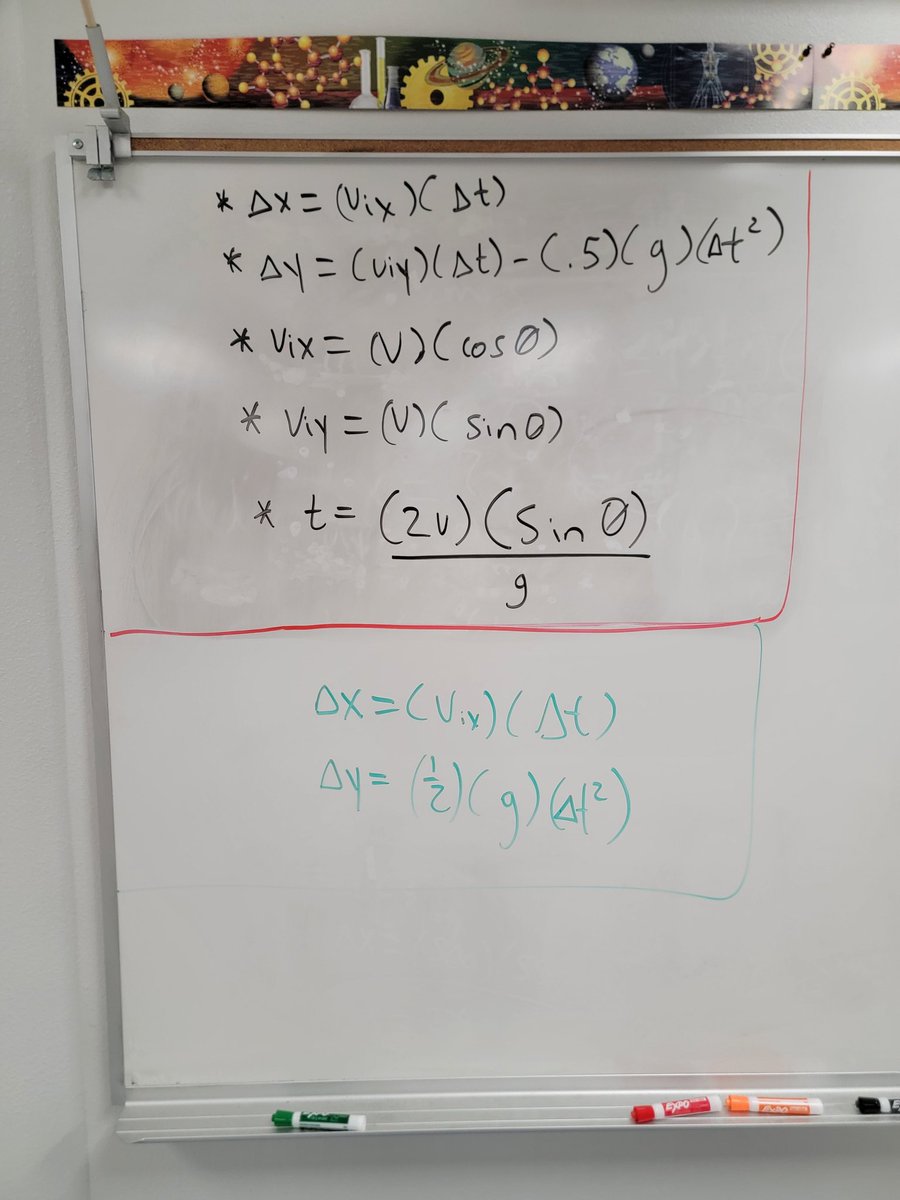 * Δx = (Vix)(Δt)
* Δy = (viy)(Δt) - (.5)(g)(Δt²)
* Vix = (V)(cosθ)
* Viy = (V)(sinθ)
* t = (2v)(Sinθ)
g
Δx = (Vix)(Δt)
Δy = (½)(g)(Δt²)
EXPO
EXPO